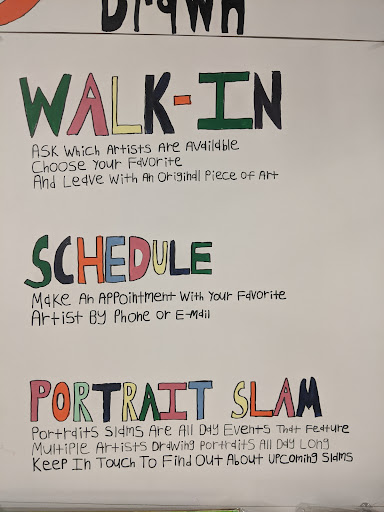 Drawn
WALK-IN
Ask Which Artists Are Available
Choose Your Favorite
And Leave With An Original Piece of Art
SCHEDULE
Make An Appointment With Your Favorite
Artist By Phone or E-Mail
PORTRAIT SLAM
Portraits Slams Are All Day Events That Feature
Multiple Artists Drawing Portraits All Day Long
Keep In Touch To Find Out About Upcoming Slams